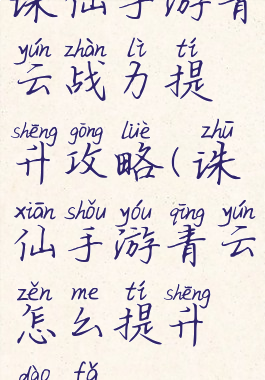 诛仙手游青
yún zhàn lì tí
云战力提
shēng gōng lüè zhū
升攻略(诛
xiān shǒu yóu qīng yún
仙手游青云
zěn me tí shēng
怎么提升
dào fǎ